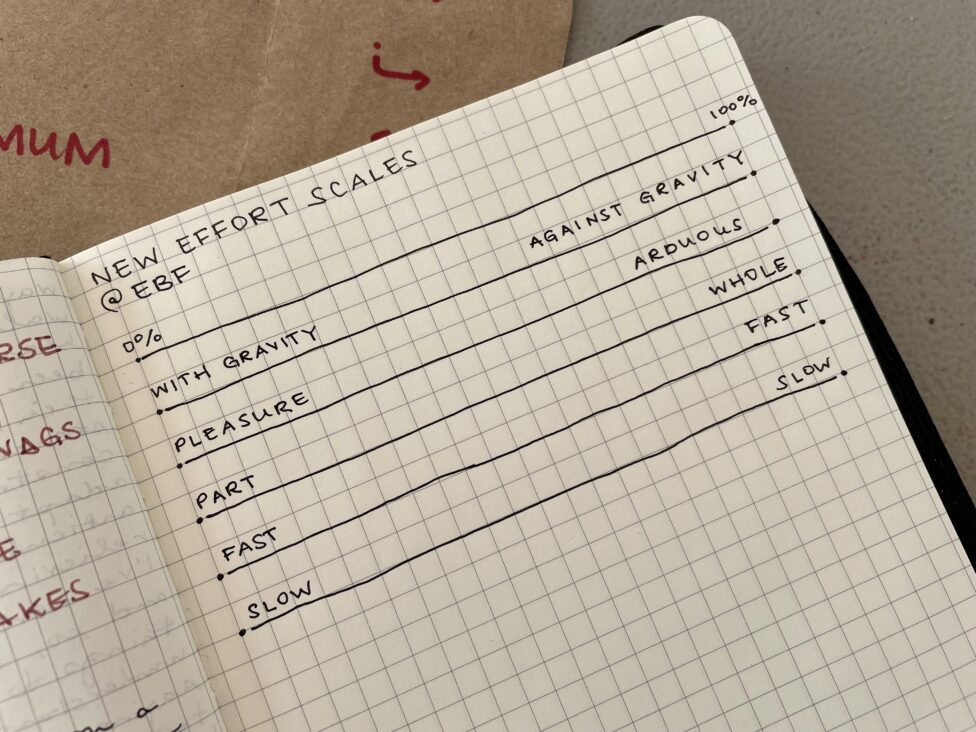 MUM
NEW EFFORT SCALES
@ EBF
0% 100%
WITH GRAVITY AGAINST GRAVITY
PLEASURE ARDUOUS
PART WHOLE
FAST FAST
SLOW SLOW
RSE
AKES